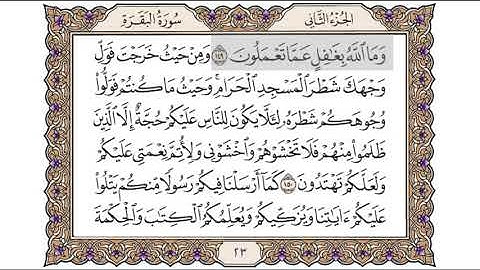 الجُزءُ الثَّانِي
سُورَةُ البَقَرَةِ
وَمَا ٱللَّهُ بِغَٰفِلٍ عَمَّا تَعْمَلُونَ ١٤٩ وَمِنْ حَيْثُ خَرَجْتَ فَوَلِّ
وَجْهَكَ شَطْرَ ٱلْمَسْجِدِ ٱلْحَرَامِ ۚ وَحَيْثُ مَا كُنتُمْ فَوَلُّوا۟
وُجُوهَكُمْ شَطْرَهُۥ لِئَلَّا يَكُونَ لِلنَّاسِ عَلَيْكُمْ حُجَّةٌ إِلَّا ٱلَّذِينَ
ظَلَمُوا۟ مِنْهُمْ فَلَا تَخْشَوْهُمْ وَٱخْشَوْنِى وَلِأُتِمَّ نِعْمَتِى عَلَيْكُمْ
وَلَعَلَّكُمْ تَهْتَدُونَ ١٥٠ كَمَآ أَرْسَلْنَا فِيكُمْ رَسُولًا مِّنكُمْ يَتْلُوا۟
عَلَيْكُمْ ءَايَٰتِنَا وَيُزَكِّيكُمْ وَيُعَلِّمُكُمُ ٱلْكِتَٰبَ وَٱلْحِكْمَةَ
٢٣